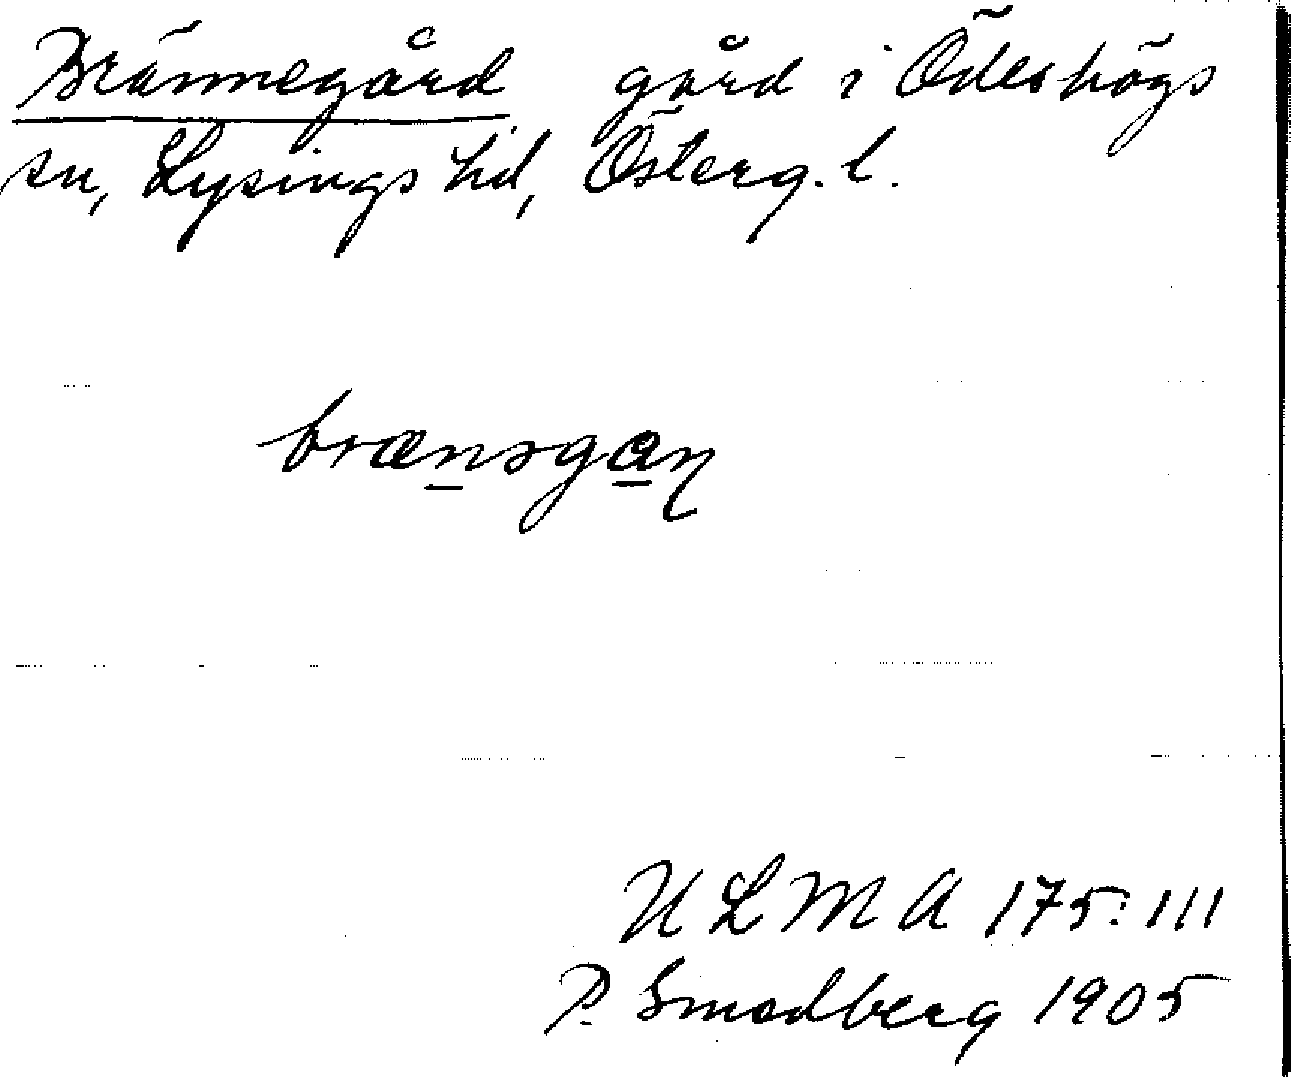 Brännegård gård i Ödeshögs
sn, Lysings hd, Österg. l.
brænsgaɳ
U L M A 175: 111
P. Smedberg 1905